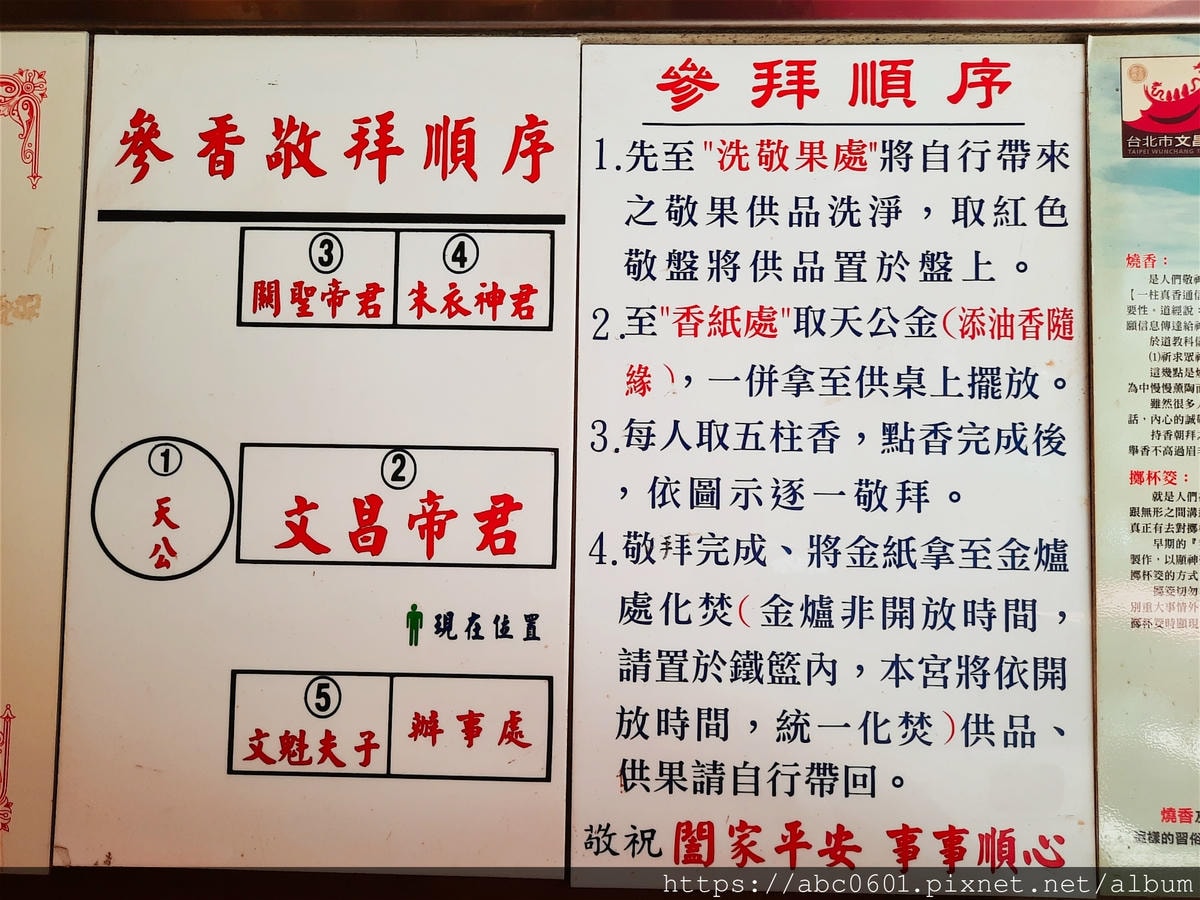 參香敬拜順序
③
關聖帝君
④
朱衣神君
①
天公
②
文昌帝君
現在位置
⑤
文魁夫子
辦事處
參拜順序
1.先至"洗敬果處"將自行帶來
之敬果供品洗淨，取紅色
敬盤將供品置於盤上。
2.至"香紙處"取天公金(添油香隨
緣)，一併拿至供桌上擺放。
3.每人取五柱香，點香完成後
，依圖示逐一敬拜。
4.敬拜完成、將金紙拿至金爐
處化焚(金爐非開放時間，
請置於鐵籃內，本宮將依開
放時間，統一化焚)供品、
供果請自行帶回。
敬祝 闔家平安 事事順心
台北市文昌
TAIPEI WUNCHANG
燒香：
是人們敬神
【一柱真香通信
要性。道經說：
願信息傳達給神
於道教科儀
⑴祈求眾神
這幾點是燒
為中慢慢薰陶而
雖然很多人
話，內心的誠敬
持香朝拜之
舉香不高過眉毛
擲杯筊：
就是人們
跟無形之間溝通
真正有去對擲
早期的『
製作，以顯神
擲杯筊的方式
擲筊切勿
別重大事情外
擲杯筊時顯現
燒香及
這樣的習俗
https://abc0601.pixnet.net/album